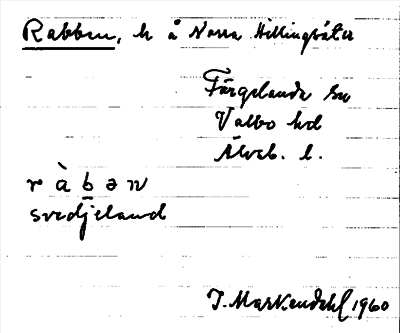 Rabben, h å Norra Hillingsäter
Färgelanda sn
Valbo hd
Älvsb. l.
r à b ə n
svedjeland
J. Markendahl 1960